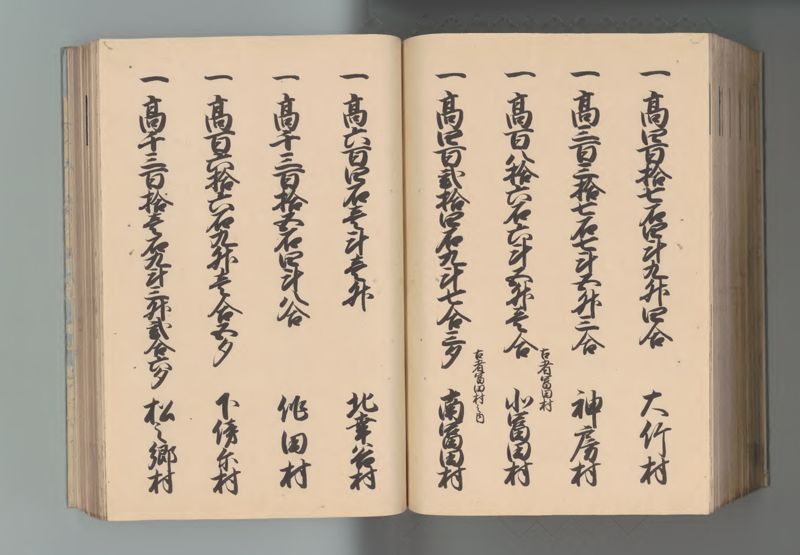 一高四百拾七石四斗九升四合 大竹村
一高三百三拾七石七斗五升三合 神房村
一高百八拾六石六斗五升壱合 古者富田村 北富田村
一高四百弐拾四石九斗七合三夕 古者富田村之内 南富田村
一高六百四石壱斗壱升 北幸谷村
一高千三百拾五石四斗八合 作田村
一高百六拾六石九升壱合五夕 下傍示村
一高千三百拾壱石九斗三升弐合六夕 松之郷村